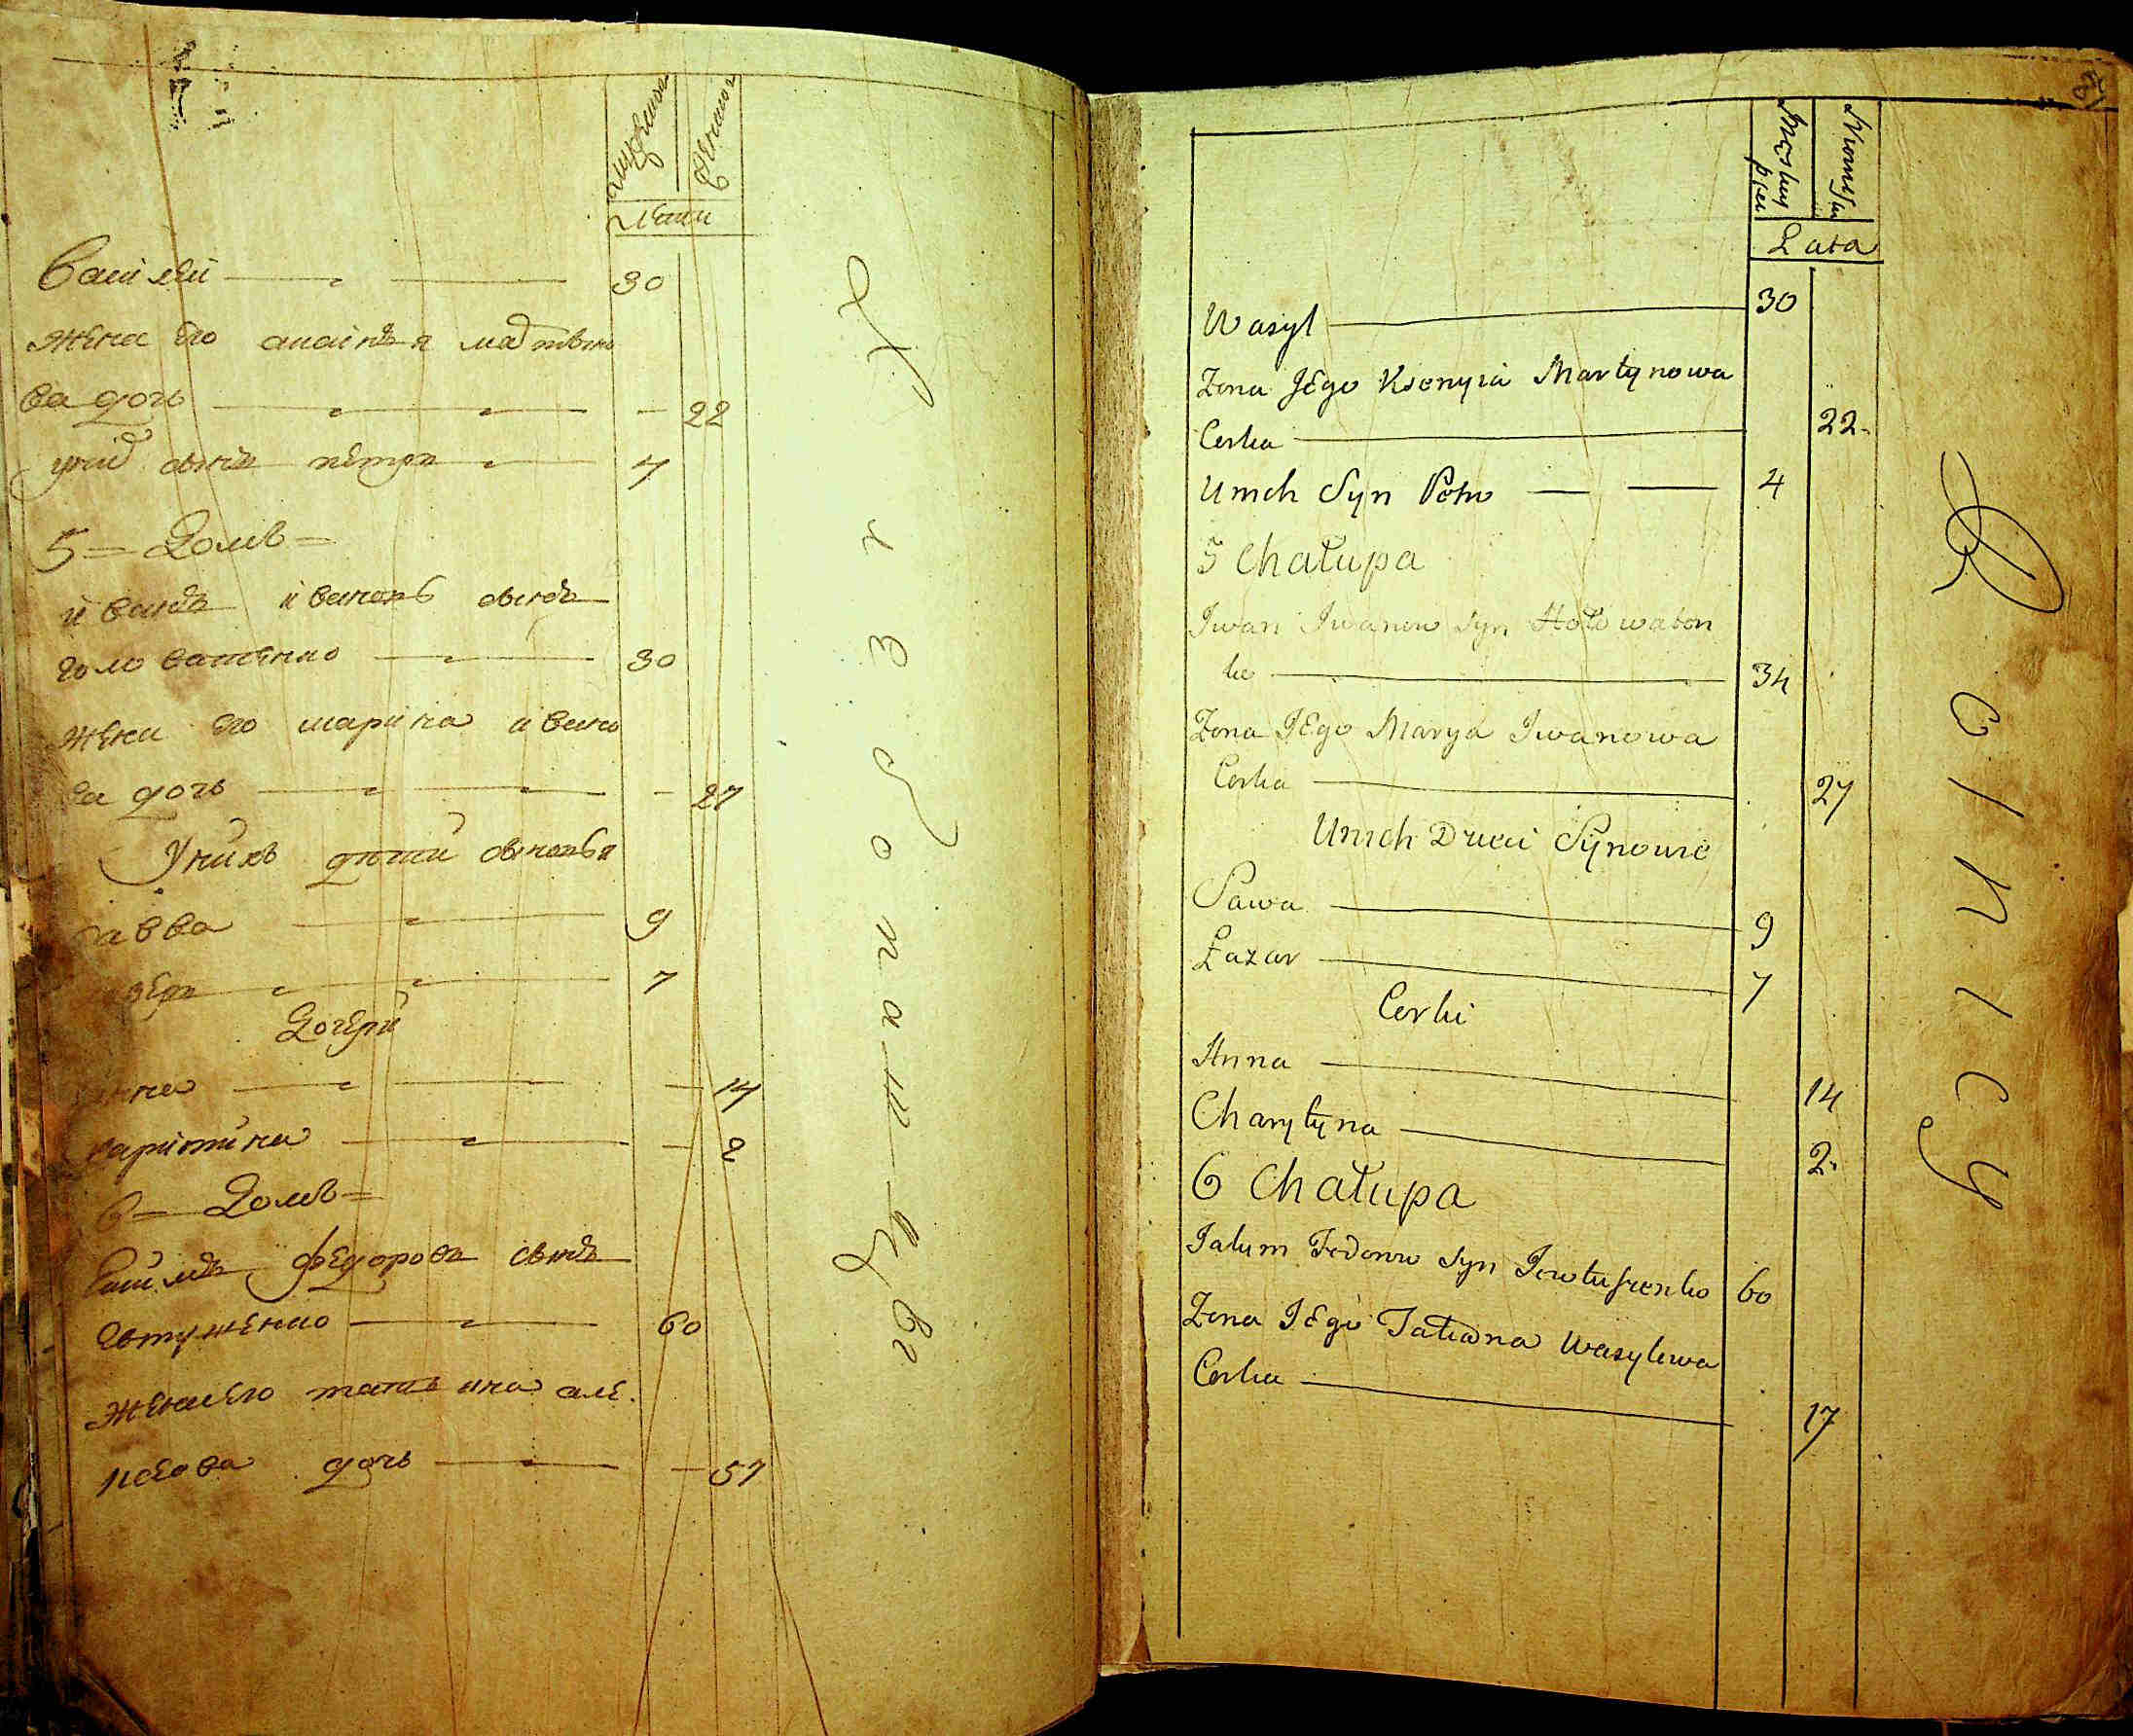 мужеска
женска
Лета
Василей 30
жена его матвее
ва дочь 22
у них сынъ петръ 7
5 = Домъ =
иванъ ивановъ сынъ
головатенко 30
жена его марина ивано
ва дочь 27
У нихъ дети сыновья
савва 9
7
Дочери
анна 14
харитина 2
6 = Домъ =
федоровъ сынъ
евтушенко 60
жена его татияна але
ксеева дочь 57
Хлебопашцы
Męskiey płci
Lata
Wasyl 30
Zona Jego Ksenyia Martynowa
Corka 22
Unich Syn Potro 4
5 Chałupa
Jwan Jwanow Syn Hołowaten
ko 34
Zona JEgo Marya Jwanowa
Corka 27
Unich Dzieci Synowie
Sawa 9
Łazar 7
Corki
Anna 14
Charytyna 2
6 Chałupa
Jakum Fedorow Syn Jewtuszenko 60
Zona JEgo Tatiana Wasylewa
Corka 17
Rolnicy